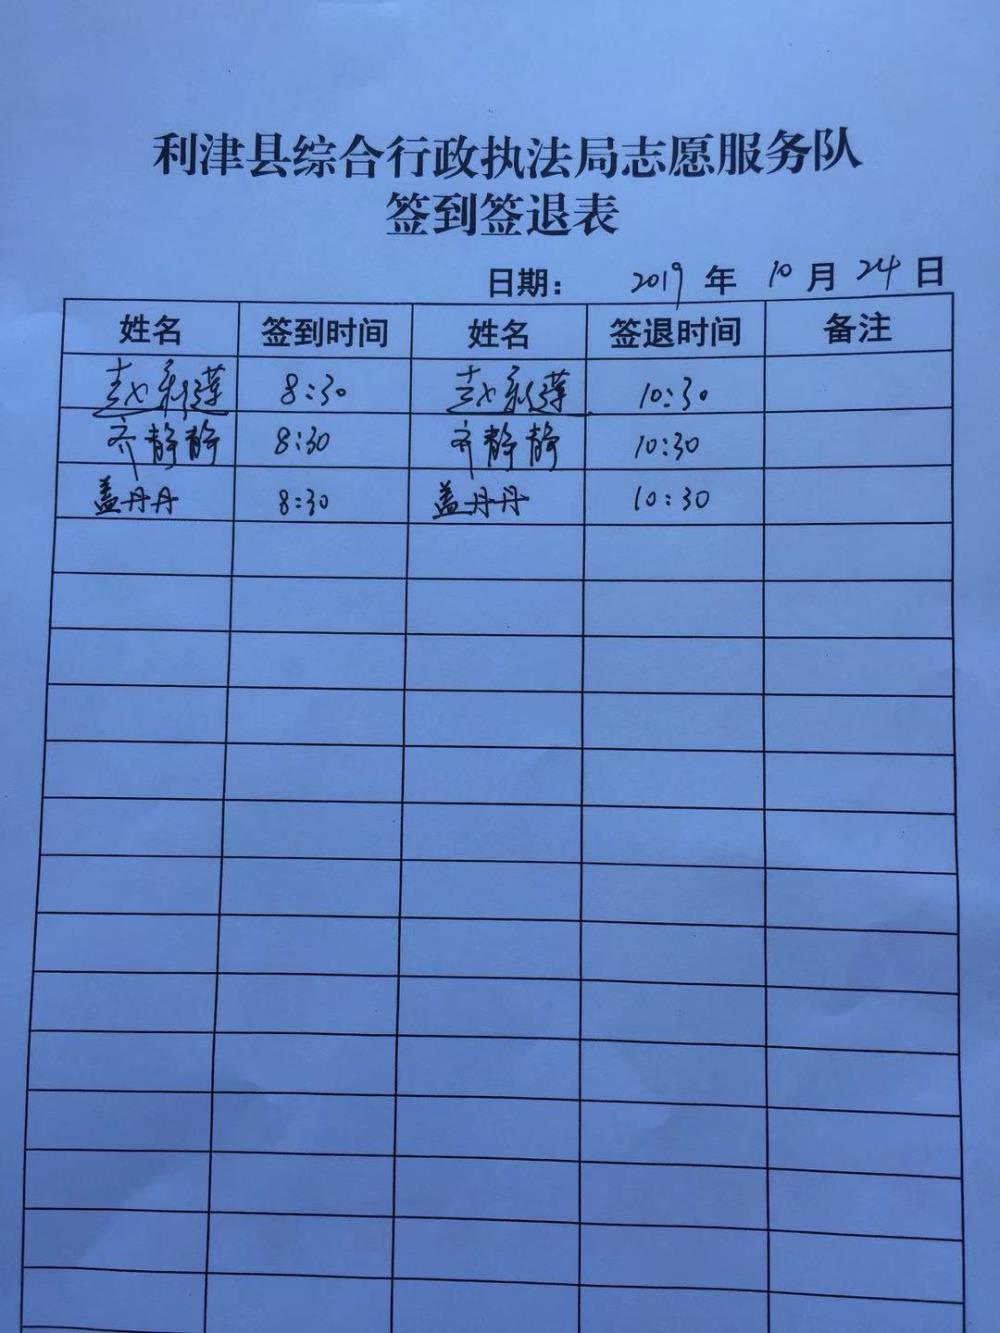 利津县综合行政执法局志愿服务队
签到签退表
日期： 2019 年 10 月 24 日
姓名 签到时间 姓名 签退时间 备注
赵利莲 8:30 赵利莲 10:30
齐静静 8:30 齐静静 10:30
盖丹丹 8:30 盖丹丹 10:30